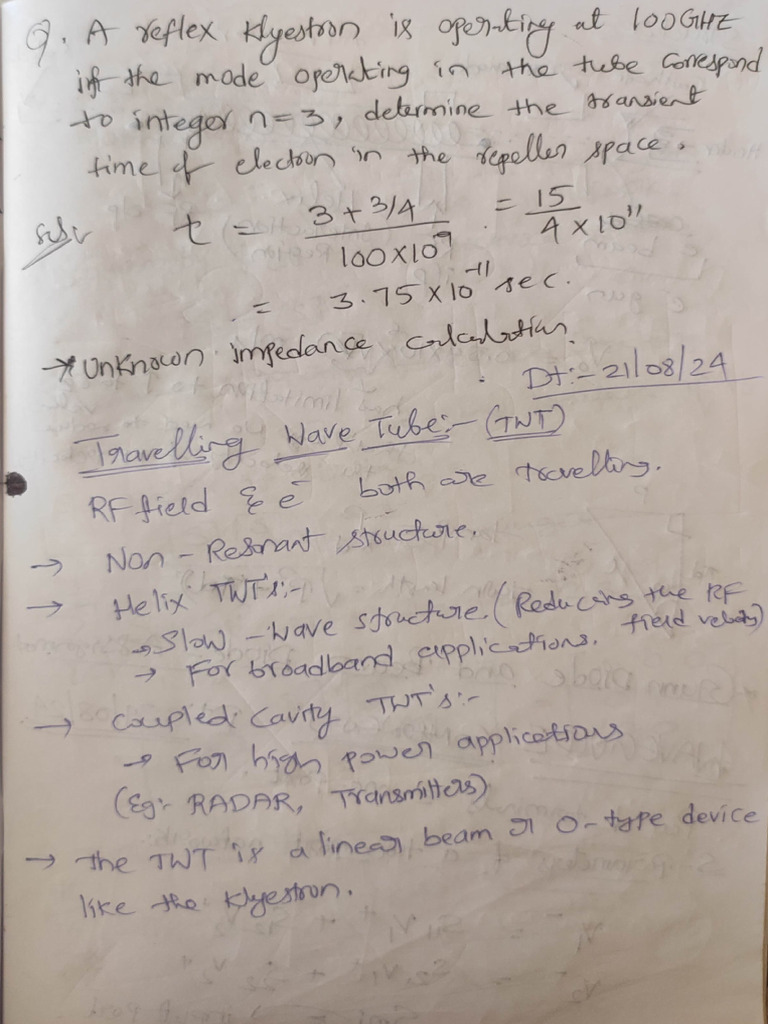 Q. A reflex Klyestron is operating at 100GHZ
if the mode operating in the tube correspond
to integer n=3, determine the transient
time of electron in the repeller space.
t = 3 + 3/4 / 100 × 10^9 = 15 / 4 × 10^11
= 3.75 × 10^-11 sec.
* Unknown impedance calculation.
Dt:- 21/08/24
Travelling Wave Tube:- (TWT)
RF field & e^- both are travelling.
→ Non - Resonant structure.
→ Helix TWT's:-
→ Slow - Wave structure. (Reducing the RF
field velocity)
→ For broadband applications.
→ Coupled Cavity TWT's:-
→ For high power applications
(Eg:- RADAR, Transmitters)
→ The TWT is a linear beam or O-type device
like the Klyestron.